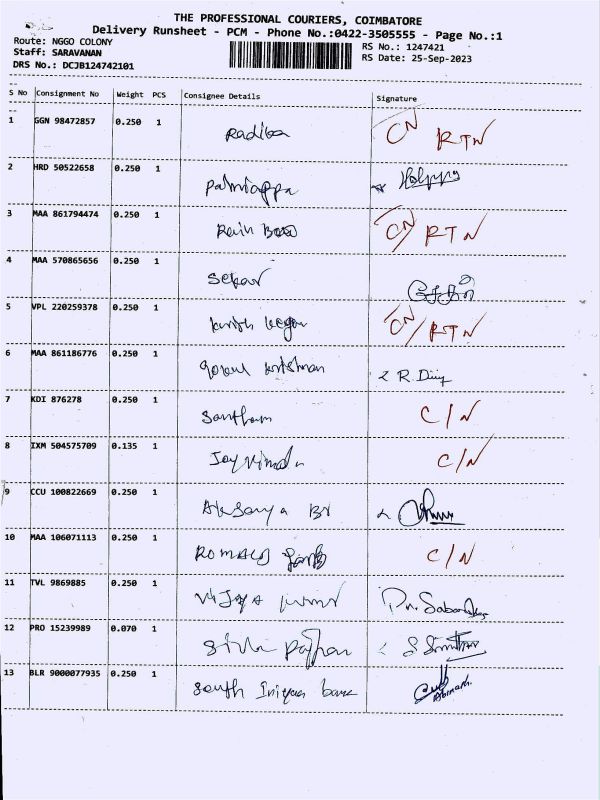 THE PROFESSIONAL COURIERS, COIMBATORE
Delivery Runsheet - PCM - Phone No.:0422-3505555 - Page No.:1
Route: NGGO COLONY
Staff: SARAVANAN
DRS No.: DCJB124742101
RS No.: 1247421
RS Date: 25-Sep-2023
S No Consignment No Weight PCS Consignee Details Signature
1 GGN 98472857 0.250 1 Radiba CN RTN
2 HRD 50522658 0.250 1
3 MAA 861794474 0.250 1 CN/RTN
4 MAA 570865656 0.250 1 Sekar சேகர்
5 VPL 220259378 0.250 1 CN/RTN
6 MAA 861186776 0.250 1 R.
7 KDI 876278 0.250 1 Santham C/N
8 IXM 504575709 0.135 1 C/N
9 CCU 100822669 0.250 1
10 MAA 106071113 0.250 1 C/N
11 TVL 9869885 0.250 1
12 PRO 15239989 0.070 1
13 BLR 9000077935 0.250 1 South bank